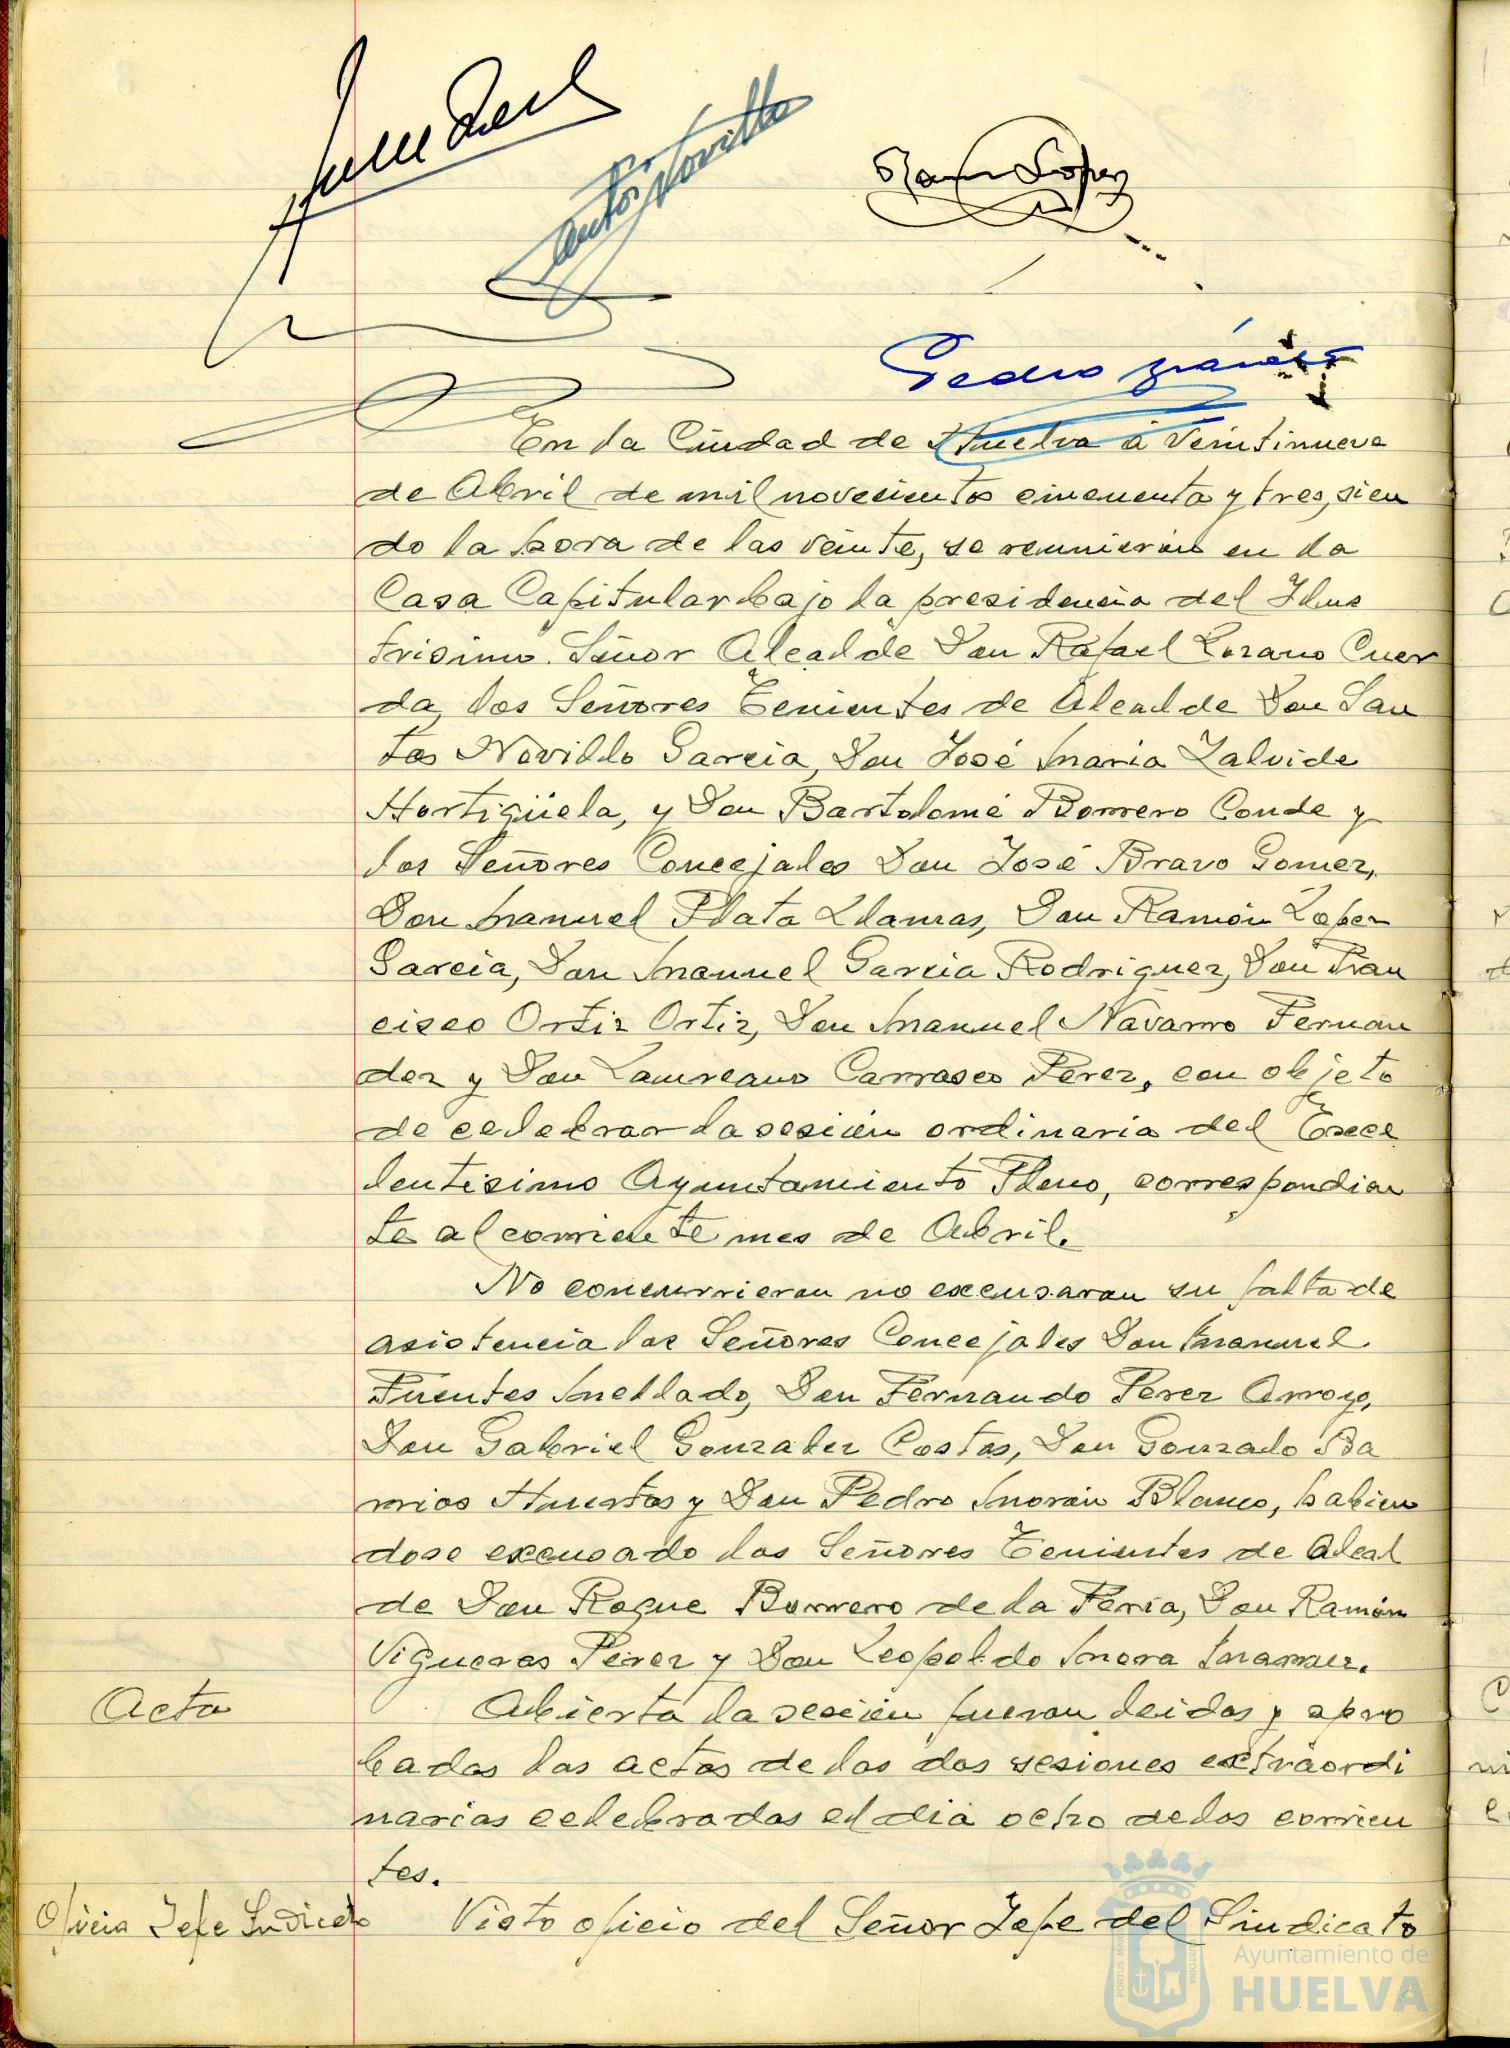 Ramón López
Pedro
En la Ciudad de Huelva a veintinueve
de Abril de mil novecientos cincuenta y tres, sien
do la hora de las veinte, se reunieron en la
Casa Capitular bajo la presidencia del Ilus
trisimo Señor Alcalde Don Rafael Lozano Cuer
da, los Señores Tenientes de Alcalde Don San
tos Novillo Garcia, Don José Maria Zalvide
Hortigüela, y Don Bartolomé Borrero Conde y
los Señores Concejales Don José Bravo Gomez,
Don Manuel Plata Llamas, Don Ramón Lopez
Garcia, Don Manuel Garcia Rodriguez, Don Fran
cisco Ortiz Ortiz, Don Manuel Navarro Fernan
dez y Don Laureano Carrasco Perez, con objeto
de celebrar la sesión ordinaria del Exce
lentisimo Ayuntamiento Pleno, correspondien
te al corriente mes de Abril.
No concurrieron no excusaron su falta de
asistencia los Señores Concejales Don Manuel
Fuentes Mellado, Don Fernando Perez Arroyo,
Don Gabriel Gonzalez Costas, Don Gonzalo Ba
rrios Huertas y Don Pedro Morón Blanco, habien
dose excusado los Señores Tenientes de Alcal
de Don Roque Borrero de la Feria, Don Ramón
Vigueras Perez y Don Leopoldo Mora
Acta
Abierta la sesión fueron leidas y apro
badas las actas de las dos sesiones extraordi
narias celebradas el dia ocho de los corrien
tes.
Oficio Jefe Sindicato
Visto oficio del Señor Jefe del Sindicato
Ayuntamiento de
HUELVA